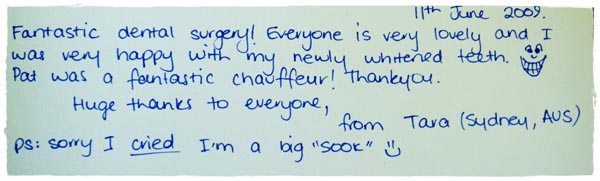 11th June 2009.
Fantastic dental surgery! Everyone is very lovely and I
was very happy with my newly whitened teeth.
Pat was a fantastic chauffeur! Thankyou.
Huge thanks to everyone,
from Tara (Sydney, AUS)
PS: sorry I cried I'm a big "sook"